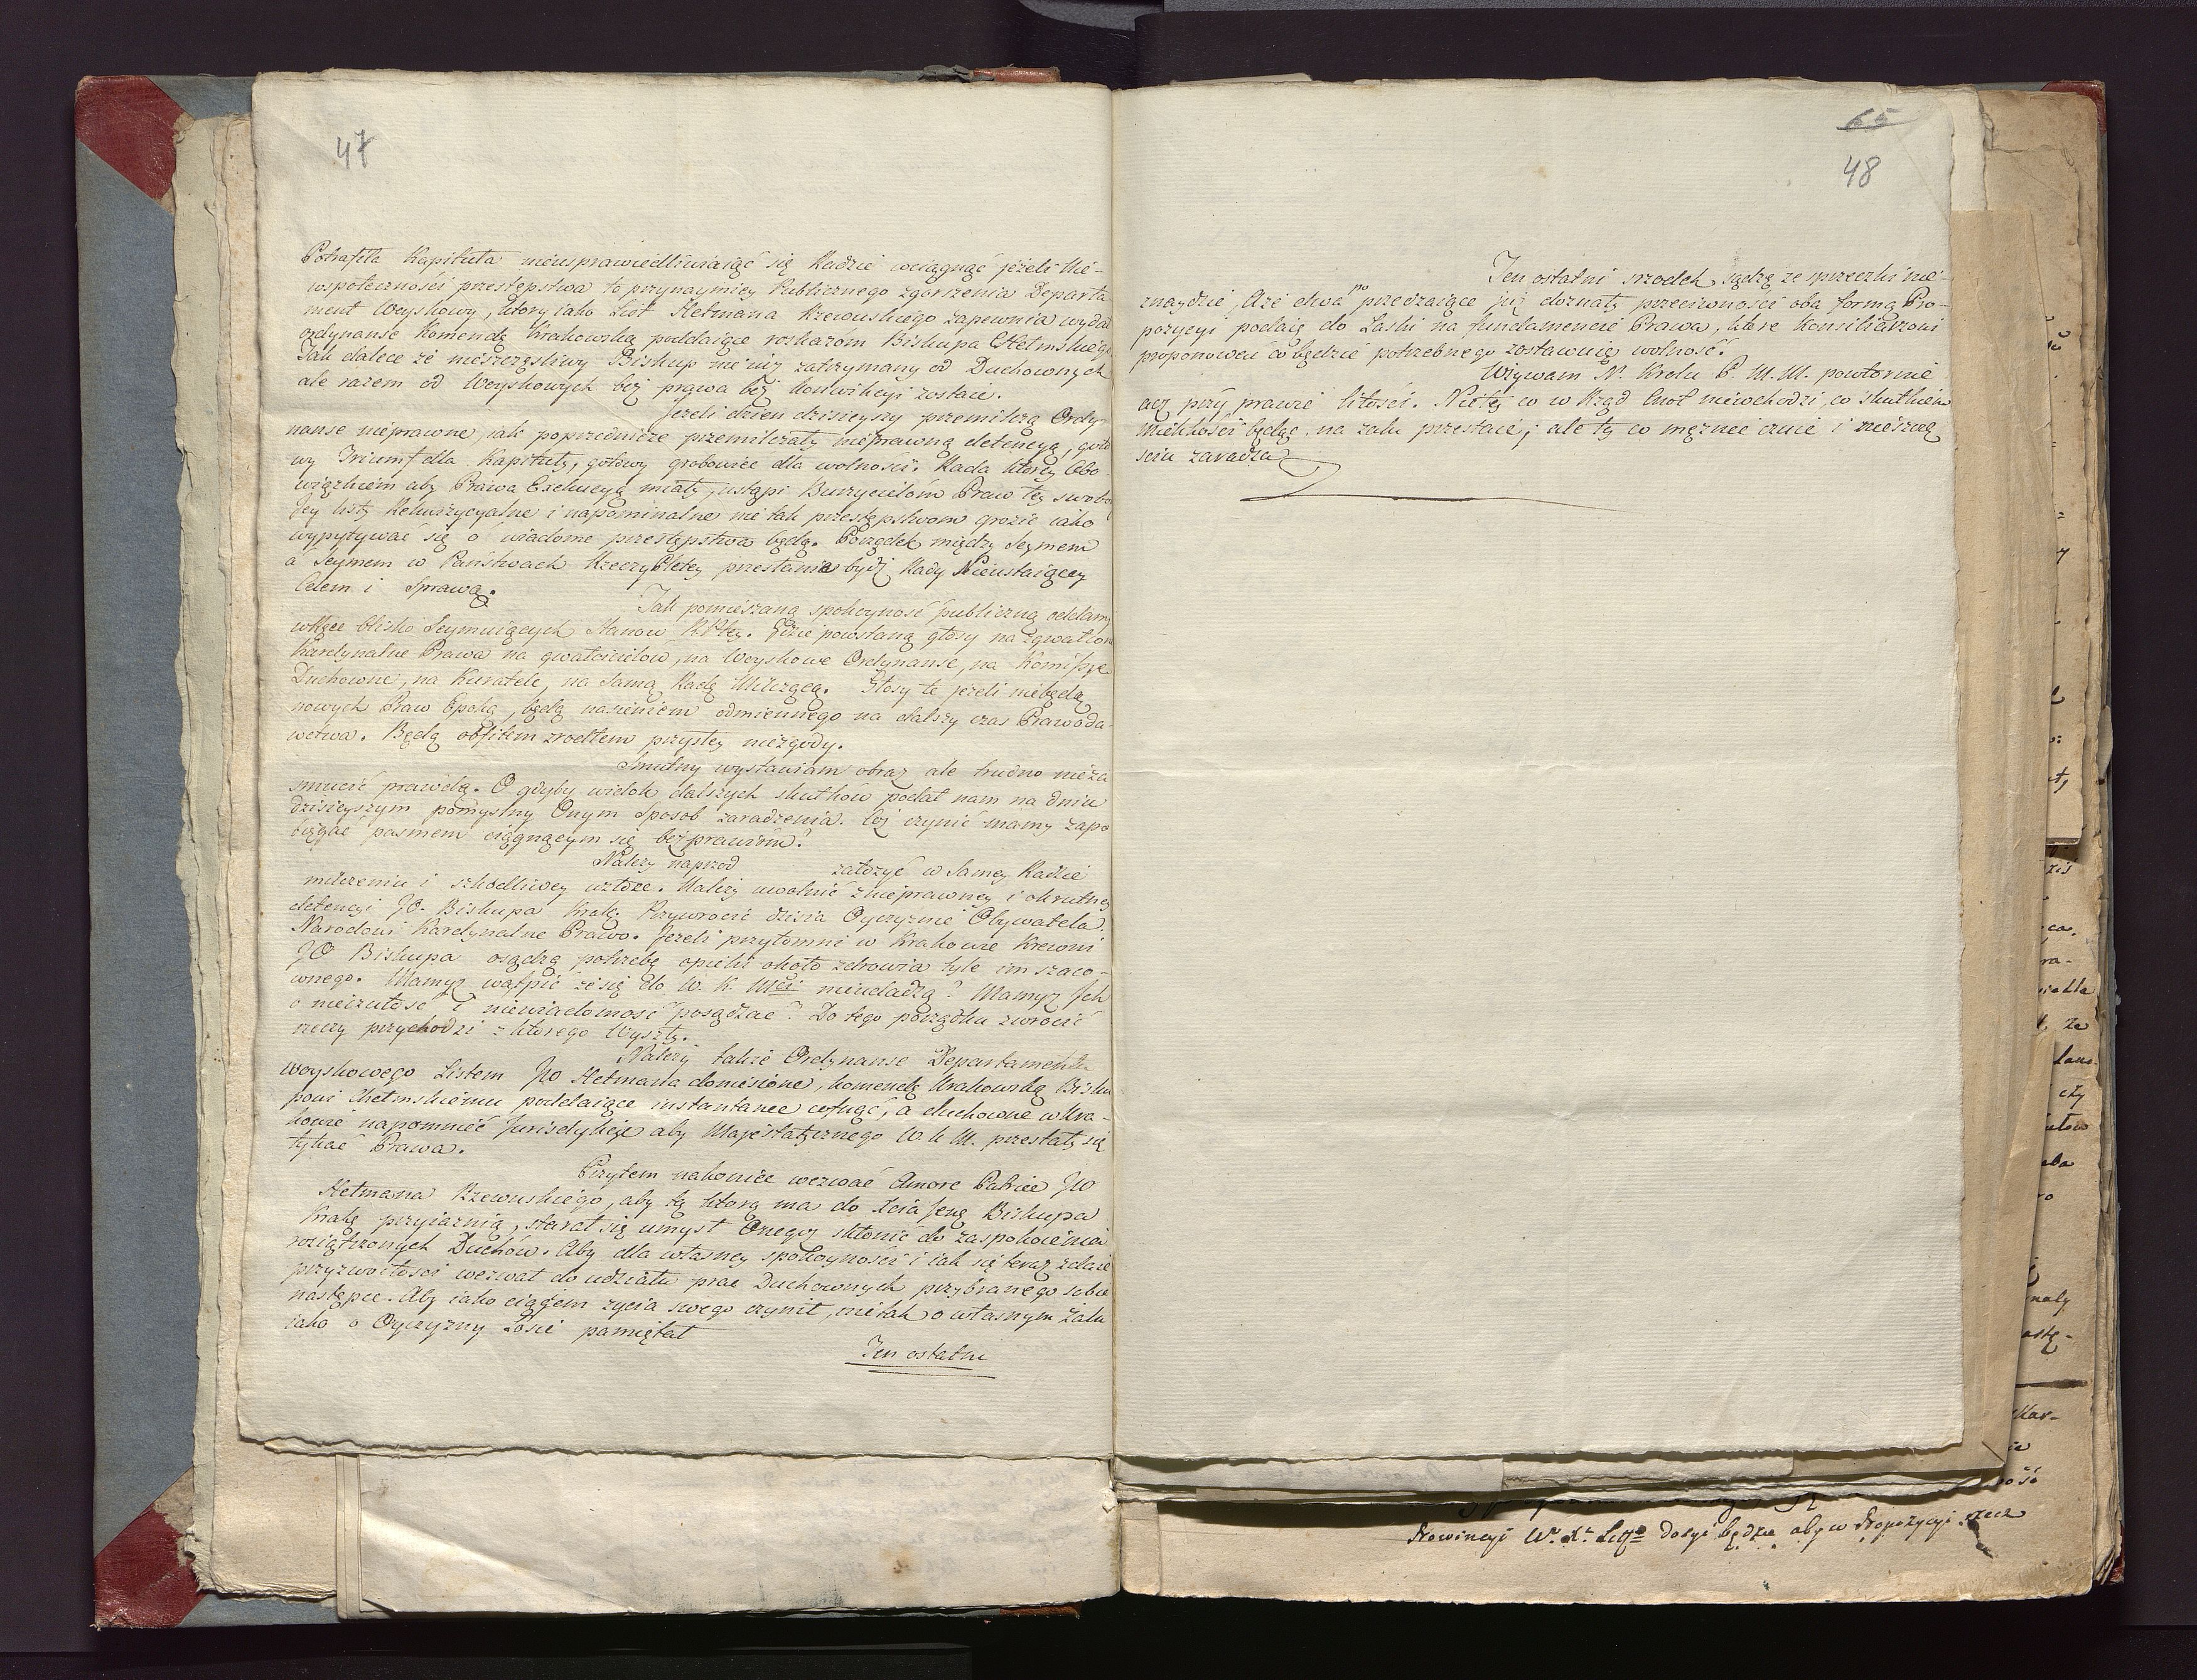 47
Potrafiła Kapituła nieusprawiedliwiaiąc się Radzie wciągnąć jeżeli nie-
wspołeczności przestępstwa to przynaymniey Publicznego zgorszenia Departa-
ment Woyskowy, ktory iako List Hetmana Rzewuskiego zapewnia wydał
ordynanse Komendę Krakowską poddaiące roskazom Biskupa Chełmskiego
Tak dalece że nieszczęśliwy Biskup nie iuż zatrzymany od Duchownych
ale razem od Woyskowych bez prawa bez konwikcyi zostaie.
Jeżeli dzien dzisieyszy przemilczą Ordy-
nanse nieprawne, iak poprzednicze przemilczały nieprawną detencyą, goto
wy Triumf dla Kapituły, gotowy grobowiec dla wolności. Rada ktorey Obo-
wiązkiem aby Prawa Exekucyą miały, ustąpi Burzycielom Praw tey swobo
Jey listy Rekwizycyalne i napominalne nie tak przestępstwom grozic iako
wypytywać się o wiadome przestępstwa będą. Porządek między Seymem
a Seymem w Państwach RzeczyPłtey przestanie bydź Rady Nieustaiącey
Celem i Sprawą.
Tak pomieszaną spokoyność publiczną oddamy
w Ręce blisko Seymuiących Stanow R.Płtey. Gdzie powstaną głosy na zgwałcone
Kardynalne Prawa na gwałcicielow, na Woyskowe Ordynanse, na Komissye
Duchowne, na Kuratele, na Samą Radę Milczącą. Głosy te jeżeli niebędą
nowych Praw Epoką, będą nasieniem odmiennego na dalszy czas Prawoda-
wctwa. Będą obfitem zrodłem przyszłey niezgody.
Smutny wystawiam obraz ale trudno nieza
smucić prawdą. O gdyby widok dalszych skutków podał nam na dniu
dzisieyszym pomyslny Onym Sposob zaradzenia. Coż czynić mamy zapo
biegac pasmem ciągnącym się bezprawiom?
Należy naprzod założyć w Samey Radzie
milczeniu i szkodliwey uztoze. Należy uwolnić z nieprawney i okrutney
detencyi JO. Biskupa Krakg. Przywrocić dzisia Oyczyznie Obywatela.
Narodowi Kardynalne Prawo. Jeżeli przytomni w Krakowie Krewni
JO Biskupa osądzą potrzebę opieki około zdrowia tyle im szaco-
wnego. Mamyz wątpić że się do W. K. Mci nieudadzą? Mamyz Ich
o nieczułość i niewiadomość posądzac? Do tego porządku zwrocić
rzeczy przychodzi z ktorego Wyszły.
Należy także Ordynanse Departamentu
Woyskowego Listem JW Hetmana doniesione, komendę Krakowską Bisku
powi Chełmskiemu poddaiące instantanee cofnąć, a duchowne w Kra-
kowie napomnieć Jurisdykcye aby Majestatycznego W. K. M. przestały się
tykać Prawa.
Przytem nakoniec wezwać Amore Patriae JW
Hetmana Rzewuskiego, aby tą ktorą ma do Xcia Jeng Biskupa
Krakg przyiaznią, starał się umysł Onegoż skłonić do zaspokoienia
roziątrzonych Duchów. Aby dla własney spokoyności i iak się teraz zdaie
przyzwoitosci wezwał do udziału prac Duchownych przybranego sobie
następce. Aby iako ciągiem zycia swego czynił, nie tak o własnym żalu
iako o Oyczyzny Losie pamiętał
Ten ostatni
65
48
Ten ostatni srzodek sądzę ze sprzeczki nie-
znaydzie, Aże dwa poprzedzaiące iuż doznały przeciwności oba formą Pro-
pozycyi podaię do Laski na fundamencie Prawa, ktore Konsiliarzowi
proponować co będzie potrzebnego zostawuie wolność.
Wzywam N. Krolu P. M. M. powtornie
acz przy prawie litości. Nie tey co w Rząd Cnot niewchodzi, co skutkiem
miekkości będąc na żalu przestaie; ale ty co mężnie czuie i nieszczę
sciu zaradza
Prowincyi W. X. Litt dosyć będzie aby w Propozycyi rzecz